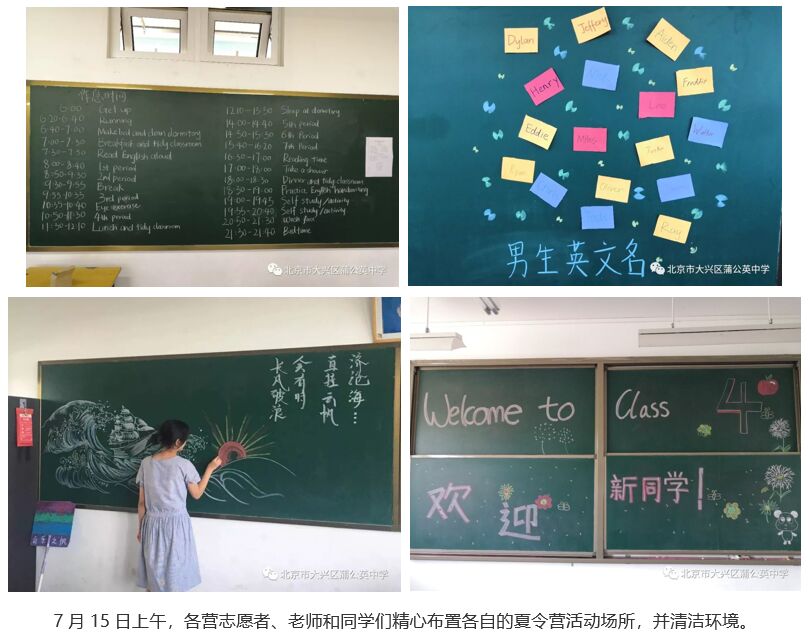 作息时间
6:00 Get up
6:20-6:40 Running
6:40-7:00 Make bed and clean dormitory
7:00-7:30 Breakfast and tidy classroom
7:30-7:50 Read English aloud
8:00-8:40 1st period
8:50-9:30 2nd period
9:30-9:55 Break
9:55-10:35 3rd period
10:35-10:40 Eye exercise
10:50-11:30 4th period
11:30-12:10 Lunch and tidy classroom
12:10-13:50 Sleep at dormitory
14:00-14:40 5th period
14:50-15:30 6th period
15:40-16:20 7th period
16:30-17:00 Reading time
17:00-18:00 Take a shower
18:00-18:30 Dinner and tidy classroom
18:30-19:00 Practice English handwriting
19:00-19:45 Self study/activity
19:55-20:40 Self study/activity
20:50-21:30 Wash
21:30-21:40 Bedtime
北京市大兴区蒲公英中学
Dylan
Jeffery
Aiden
Henry
Freddie
Leo
Eddie
Miles
Walter
Ryan
Oliver
Ray
男生英文名
北京市大兴区蒲公英中学
长风破浪
会有时
直挂云帆
济沧海…
北京市大兴区蒲公英中学
Welcome to
Class 4
欢迎
新同学!
北京市大兴区蒲公英中学
7月15日上午，各营志愿者、老师和同学们精心布置各自的夏令营活动场所，并清洁环境。